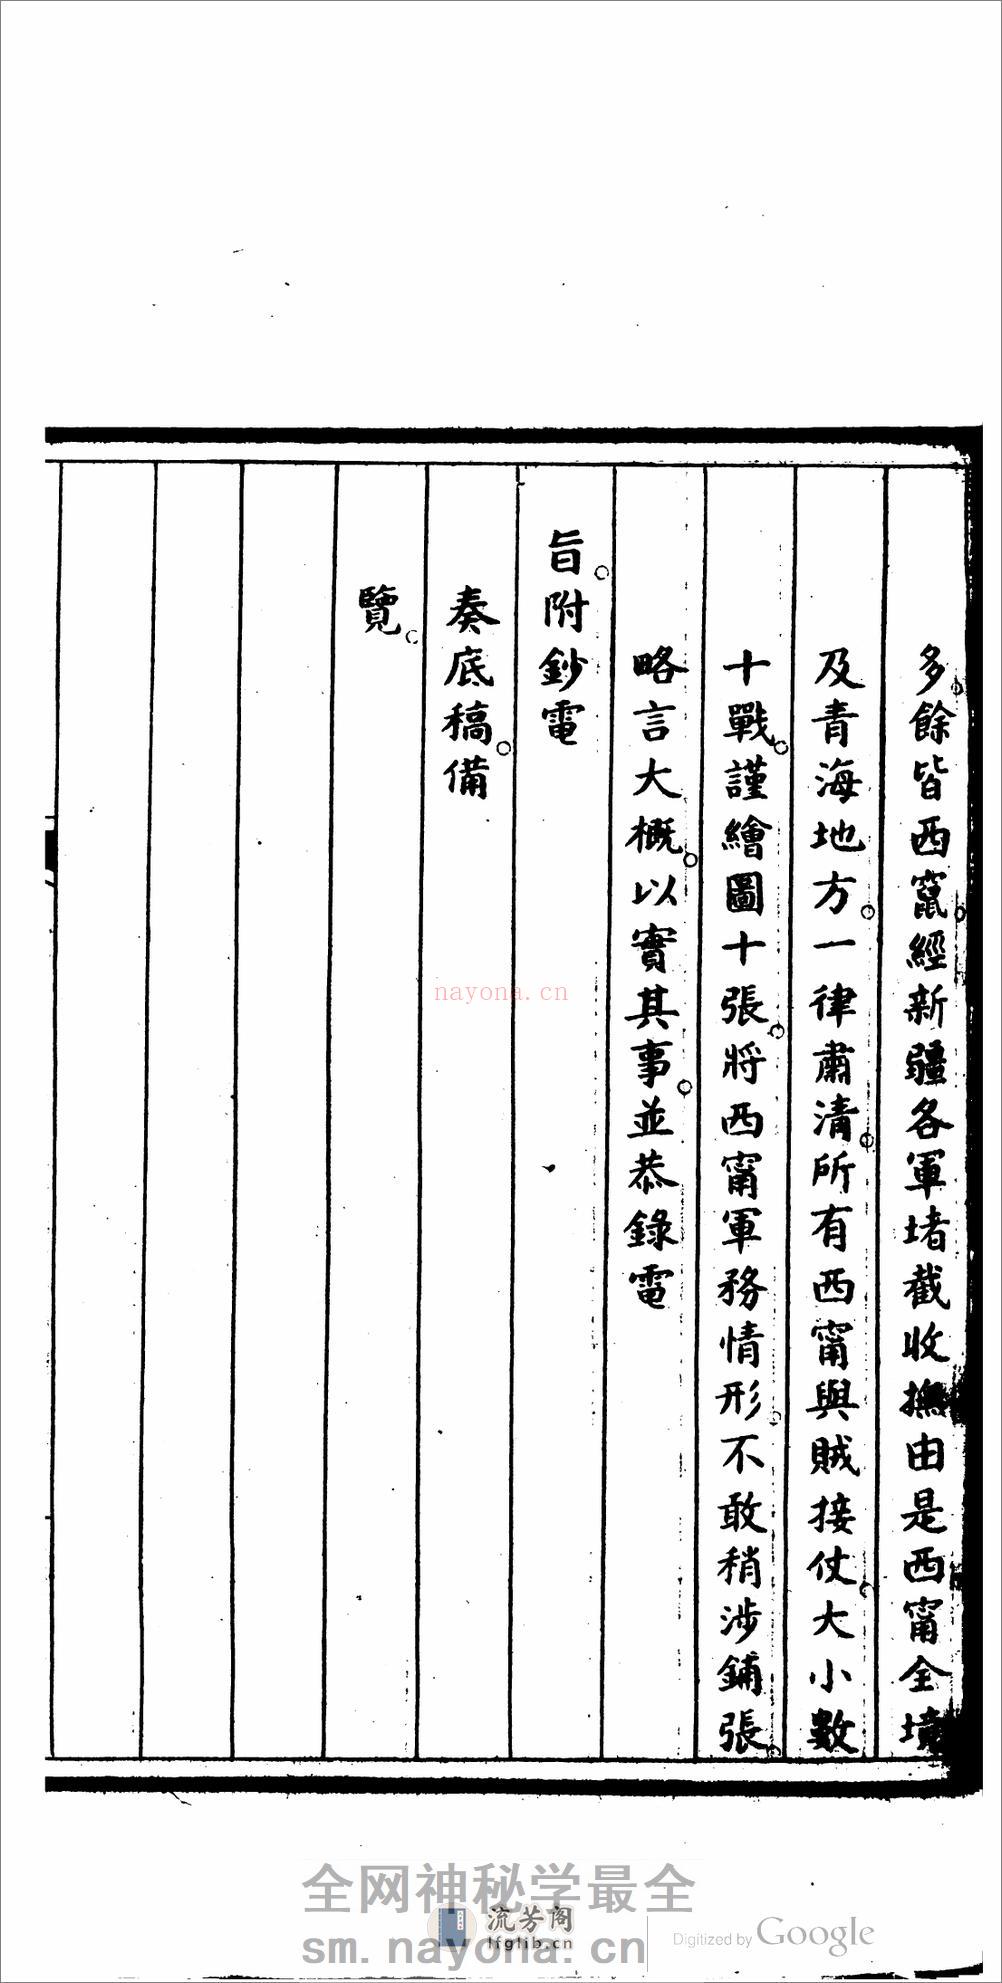 多餘皆西竄經新疆各軍堵截收撫由是西甯全境
及青海地方一律肅清所有西甯與賊接仗大小數
十戰謹繪圖十張將西甯軍務情形不敢稍涉鋪張
略言大概以實其事並恭錄電
旨附鈔電
奏底稿備
覽
nayona.cn
全网神秘学最全
流芳阁
lfglib.cn
sm.nayona.cn
Digitized by Google